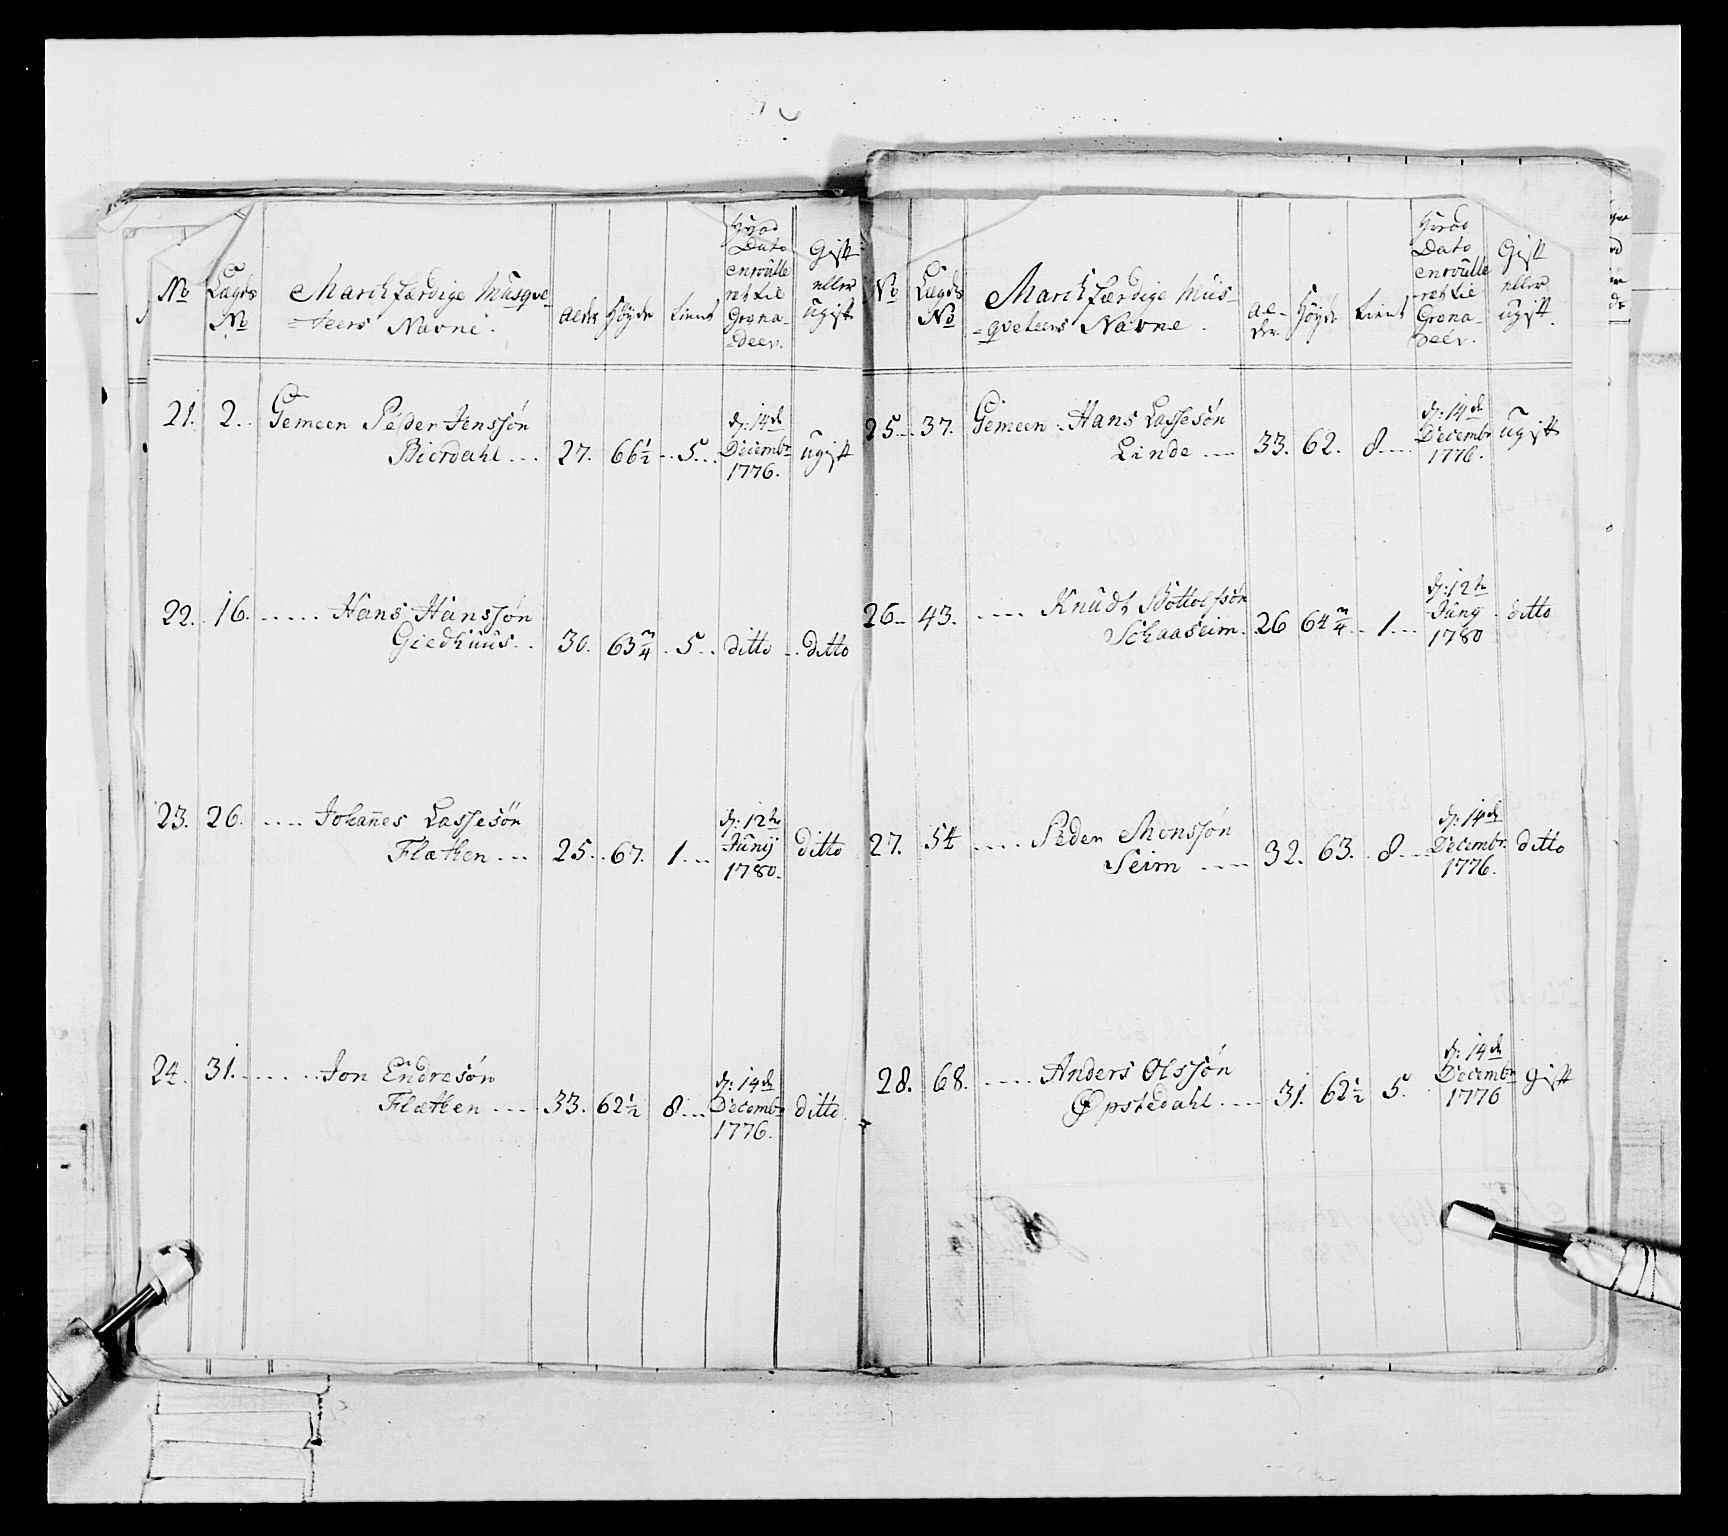 No
Lægds
No
March færdige Musqve-
=teers Navne.
Alder
Høyde
tient
Hvad
Dato
enroulle
ret til
Grena-
=deer.
Gift
eller
ugift
21. 2. Gemeen Peder Jenssøn
Bierdahl 27. 66 1/2 5. d: 14de
Decembr
1776. ugift
22. 16. Hans Hanssøn
Giedhuus. 30. 63 3/4 5. ditto ditto
23. 26. Johannes Lassesøn
Flatten 25. 67. 1. d: 12te
Junij
1780. ditto
24. 31. Jon Endresøn
Flatten 33. 62 1/2 8. d: 14de
Decembr
1776. ditto
No
Lægds
No
March færdige Mus-
=qveteers Navne.
Al-
der.
Høyde
tient
Hvad
Dato
enroulle
ret til
Grena-
deer.
Gift
eller
ugift.
25. 37. Gemeen Hans Lassesøn
Linde 33. 62. 8. d: 14de
Decembr
1776. ugift
26. 43. Knudt Bottolfsøn
Schaaseim. 26 64 3/4 1. d: 12te
Juny
1780 ditto
27. 54 Peder Monssøn
Seim 32. 63. 8. d: 14de
Decembr.
1776. ditto
28. 68. Anders Olssøn
Øpstedahl 31. 62 1/2 5. d: 14de
Decembr
1776 gift